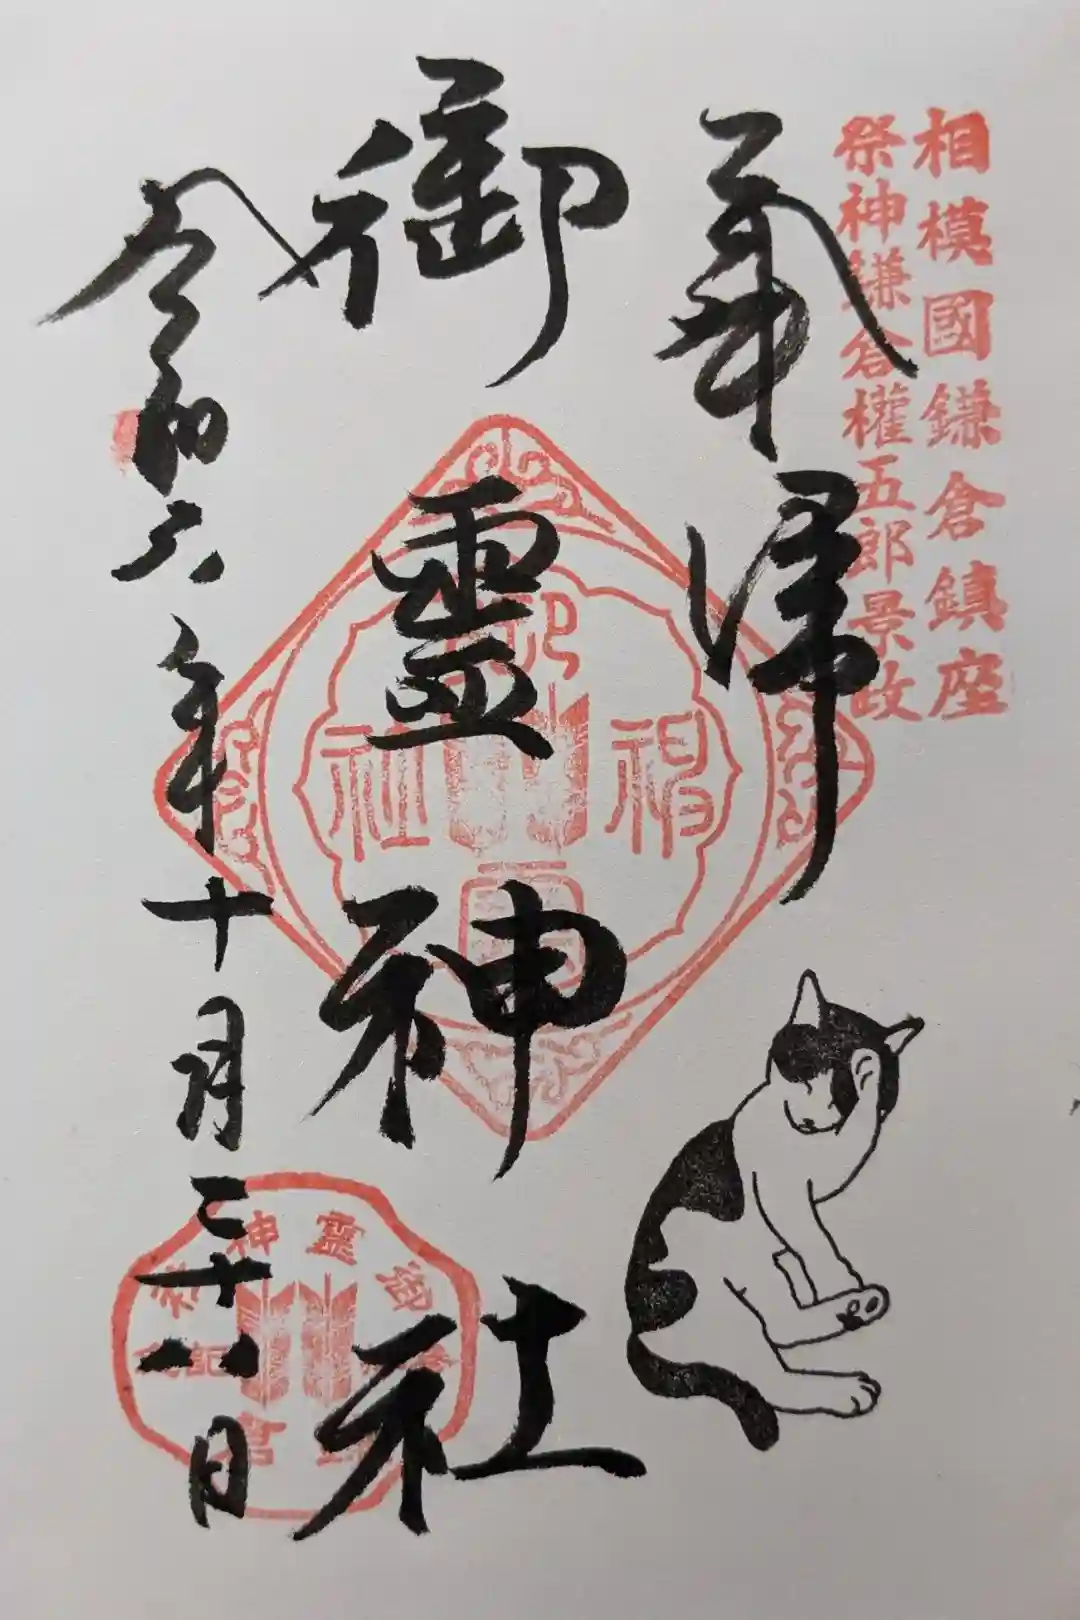 相模國鎌倉鎮座
祭神鎌倉權五郎景政
奉拝
御靈神社
令和六年十月二十八日